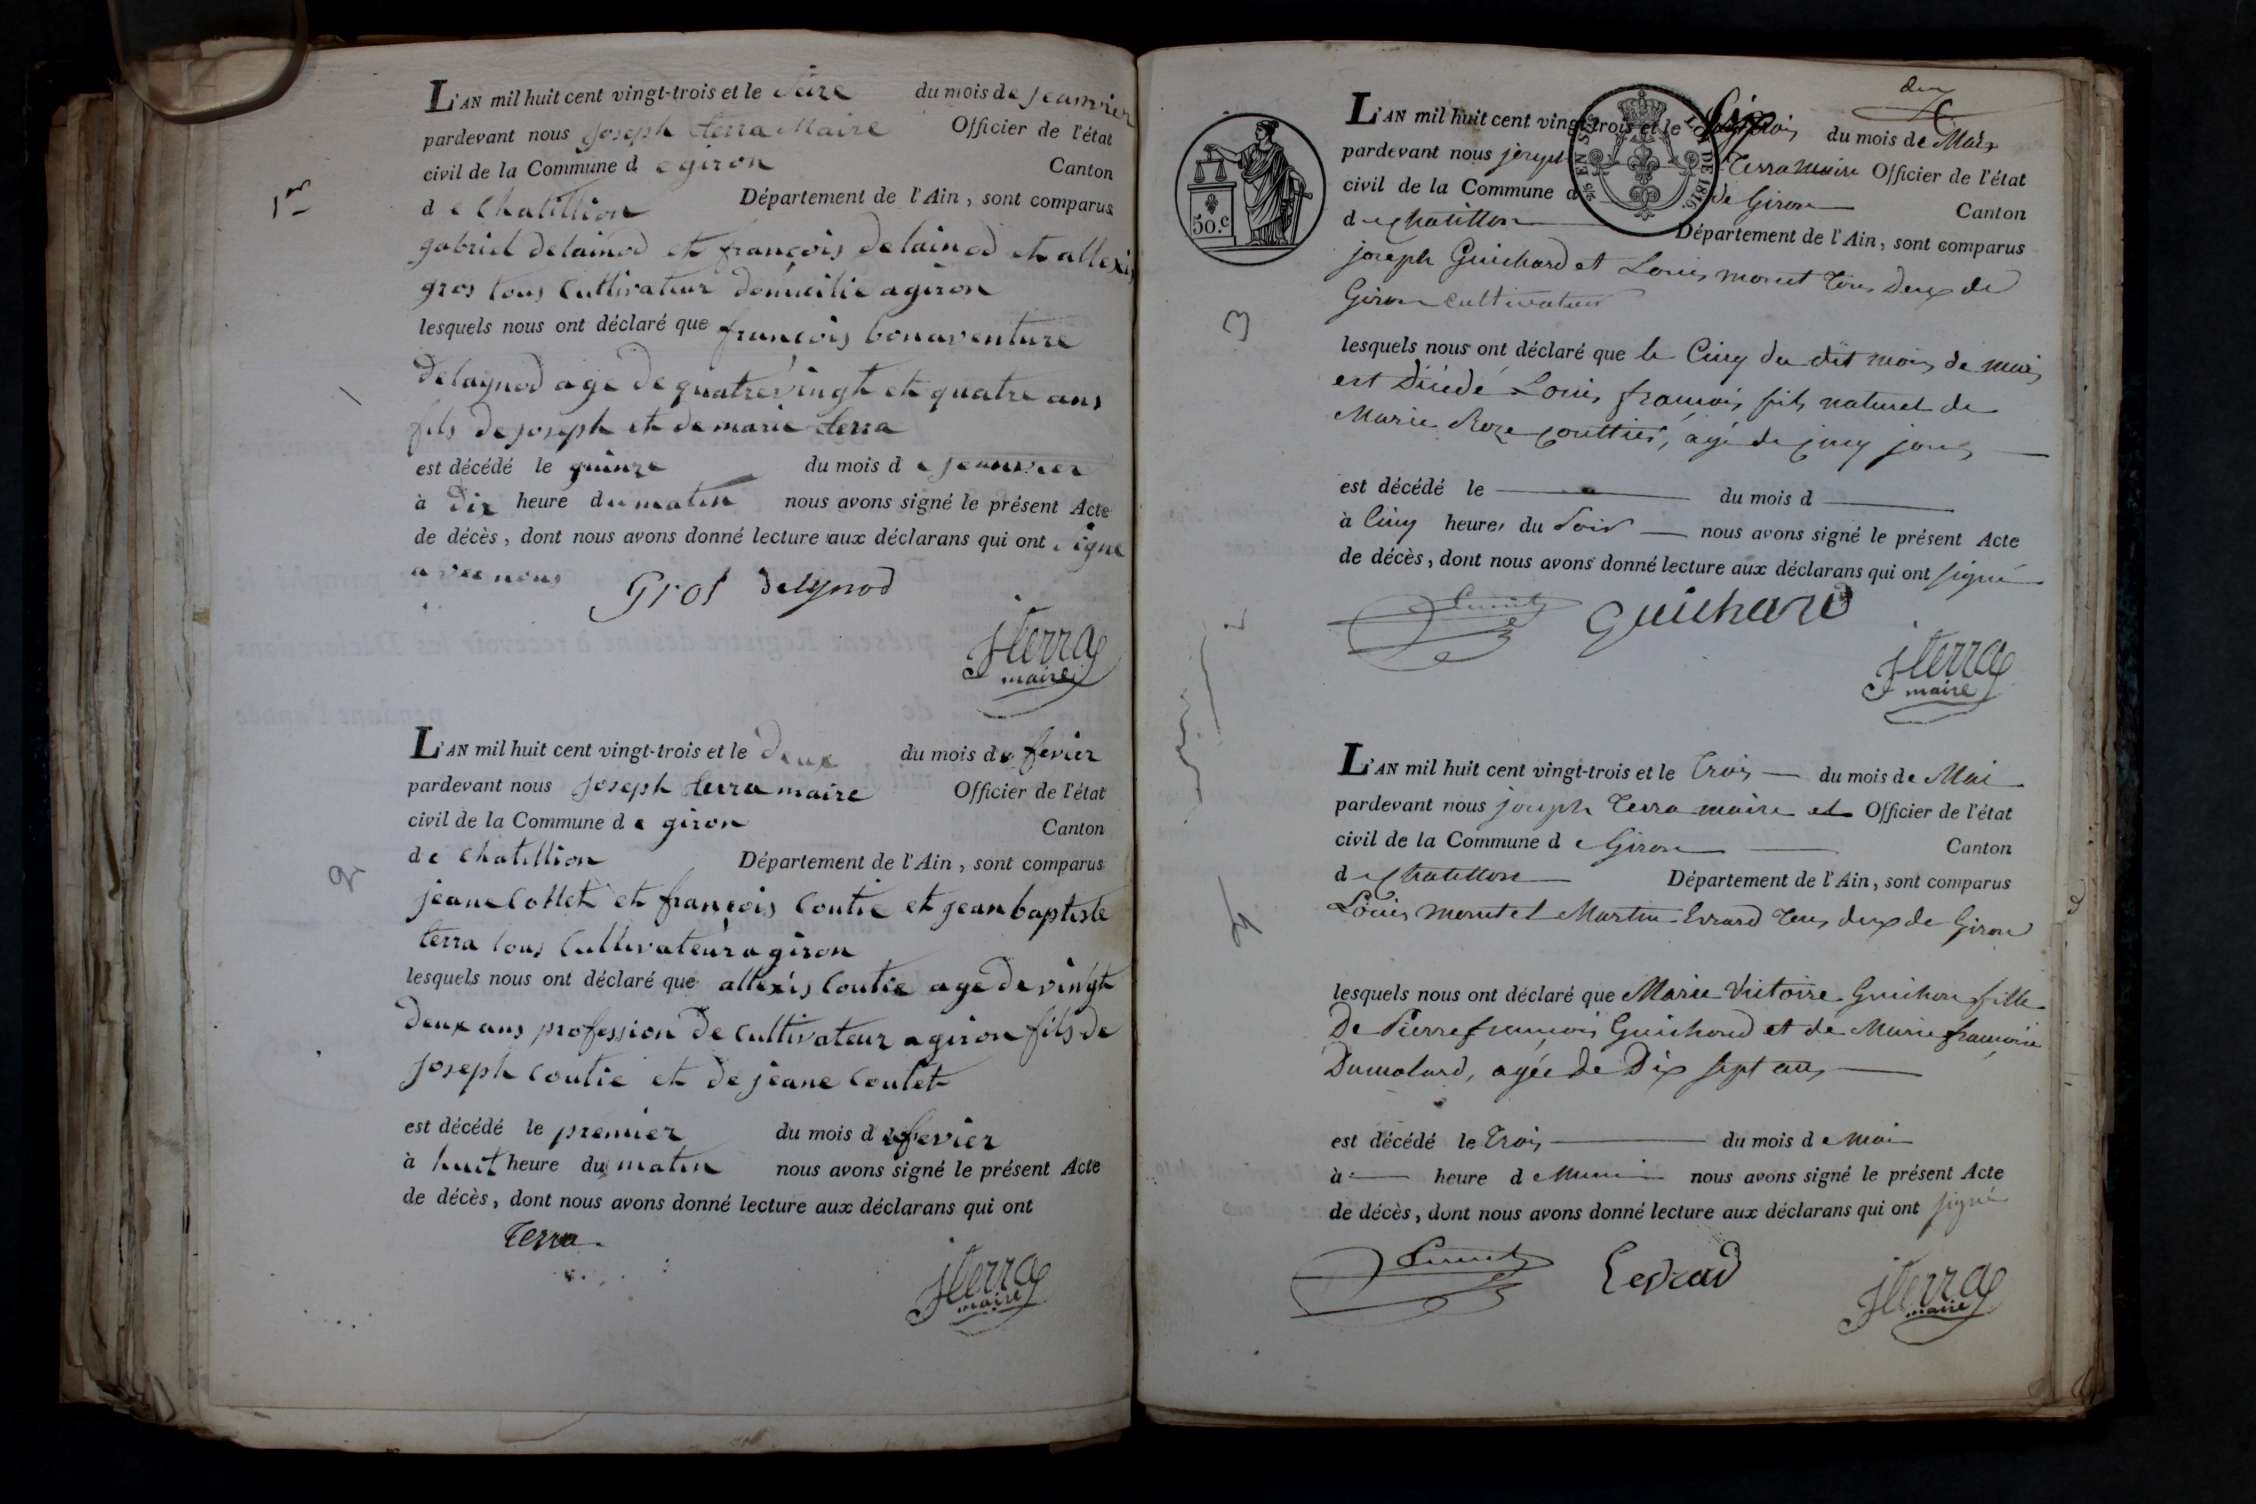 1er
L'AN mil huit cent vingt-trois et le seize du mois de jeanvier
pardevant nous joseph terra Maire Officier de l'état
civil de la Commune d e giron Canton
d e Chatillion Département de l'Ain, sont comparus
gabriel delainod et françois delainod et allexis
gros tous Cultivateur domicilie a giron
lesquels nous ont déclaré que françois bonaventure
delaynod age de quatrevingt et quatre ans
fils de joseph et de marie terra
est décédé le quinze du mois d e jeanvier
à dix heure du matin nous avons signé le présent Acte
de décès, dont nous avons donné lecture aux déclarans qui ont signe
avec nous
Gros delynod
jterra
maire
2
L'AN mil huit cent vingt-trois et le deux du mois de fevier
pardevant nous joseph terra maire Officier de l'état
civil de la Commune d e giron Canton
de chatillion Département de l'Ain, sont comparus
jeane Collet et françois Coutie et jean baptiste
terra tous Cultivateur a giron
lesquels nous ont déclaré que allexis Coutie age de vingt
deux ans profession de cultivateur a giron fils de
joseph coutie et de jeane Coulet
est décédé le premier du mois de fevier
à huit heure du matin nous avons signé le présent Acte
de décès, dont nous avons donné lecture aux déclarans qui ont
terra
jterra
maire
deux
50.c
LOI DE 1816.
3
L'AN mil huit cent vingt-trois et le Six du mois de Mars
pardevant nous joseph Terra maire Officier de l'état
civil de la Commune d de Giron Canton
de Chatillon Département de l'Ain, sont comparus
joseph Guichard et Louis moret Tous Deux de
Giron cultivateur
lesquels nous ont déclaré que le Cinq du dit mois de mars
est Décédé Louis françois fils naturel de
Marie Roze Couttier, âgé de Cinq jours
est décédé le du mois d
à Cinq heures du Soir nous avons signé le présent Acte
de décès, dont nous avons donné lecture aux déclarans qui ont signé
Guichard
jterra
maire
4
L'AN mil huit cent vingt-trois et le Trois du mois de Mai
pardevant nous joseph Terra maire et Officier de l'état
civil de la Commune d e Giron Canton
de Chatillon Département de l'Ain, sont comparus
Louis moret et Martin Evrard Tous deux de Giron
lesquels nous ont déclaré que Marie Victoire Guichon fille
De Pierre françois Guichard et de Marie françoise
Dumolard, agée de Dix sept ans
est décédé le Trois du mois d e mai
à heure d nous avons signé le présent Acte
de décès, dont nous avons donné lecture aux déclarans qui ont signé
jterra
maire